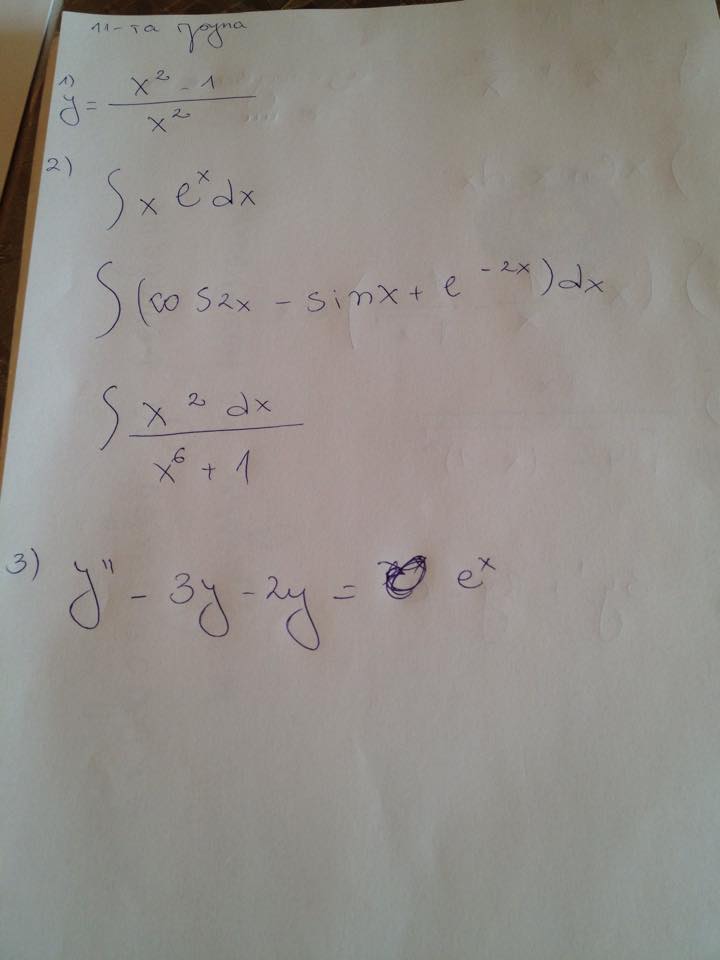 11-та група
1) y = (x² - 1)/x²
2)
∫ x eˣ dx
∫ (cos2x - sinx + e⁻²ˣ) dx
∫ x² dx/(x⁶ + 1)
3) y'' - 3y - 2y = eˣ